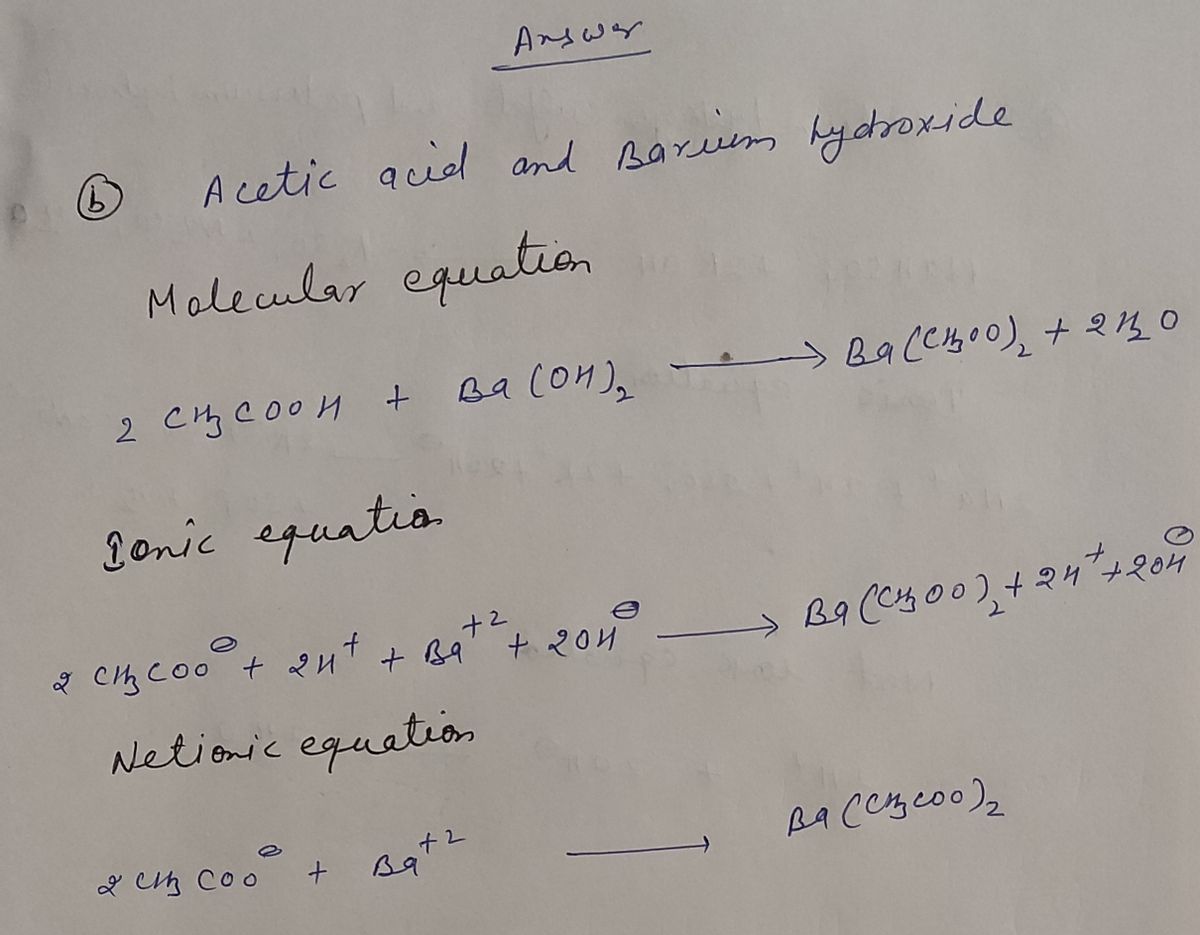 Answer
(b) Acetic acid and Barium hydroxide
Molecular equation
2 CH3COOH + Ba(OH)2 → Ba(CH3OO)2 + 2H2O
Ionic equation
2 CH3COO⊖ + 2H+ + Ba+2 + 2OH⊖ → Ba(CH3OO)2 + 2H+ + 2OH⊖
Netionic equation
2 CH3COO⊖ + Ba+2 → Ba(CH3COO)2